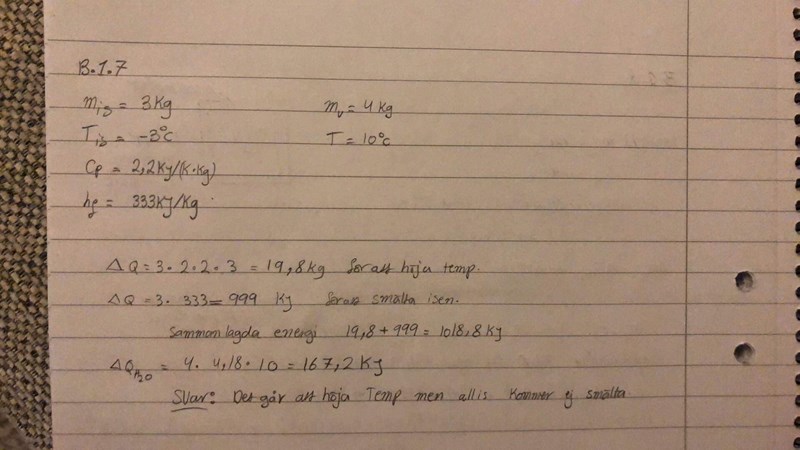 B.1.7
mis = 3 kg mv = 4 kg
Tis = -3°C T = 10°C
Cp = 2,2 kJ/(K·kg)
hf = 333 kJ/kg
ΔQ = 3·2.2·3 = 19,8 kg för att höja temp.
ΔQ = 3· 333 = 999 kJ för att smälta isen.
Sammanlagda energi 19,8 + 999 = 1018,8 kJ
ΔQH2O = 4· 4,18·10 = 167,2 kJ
Svar: Det går att höja Temp men all is kommer ej smälta.